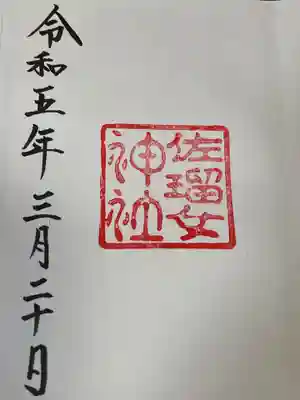 佐瑠女
神社
令和五年三月二十日